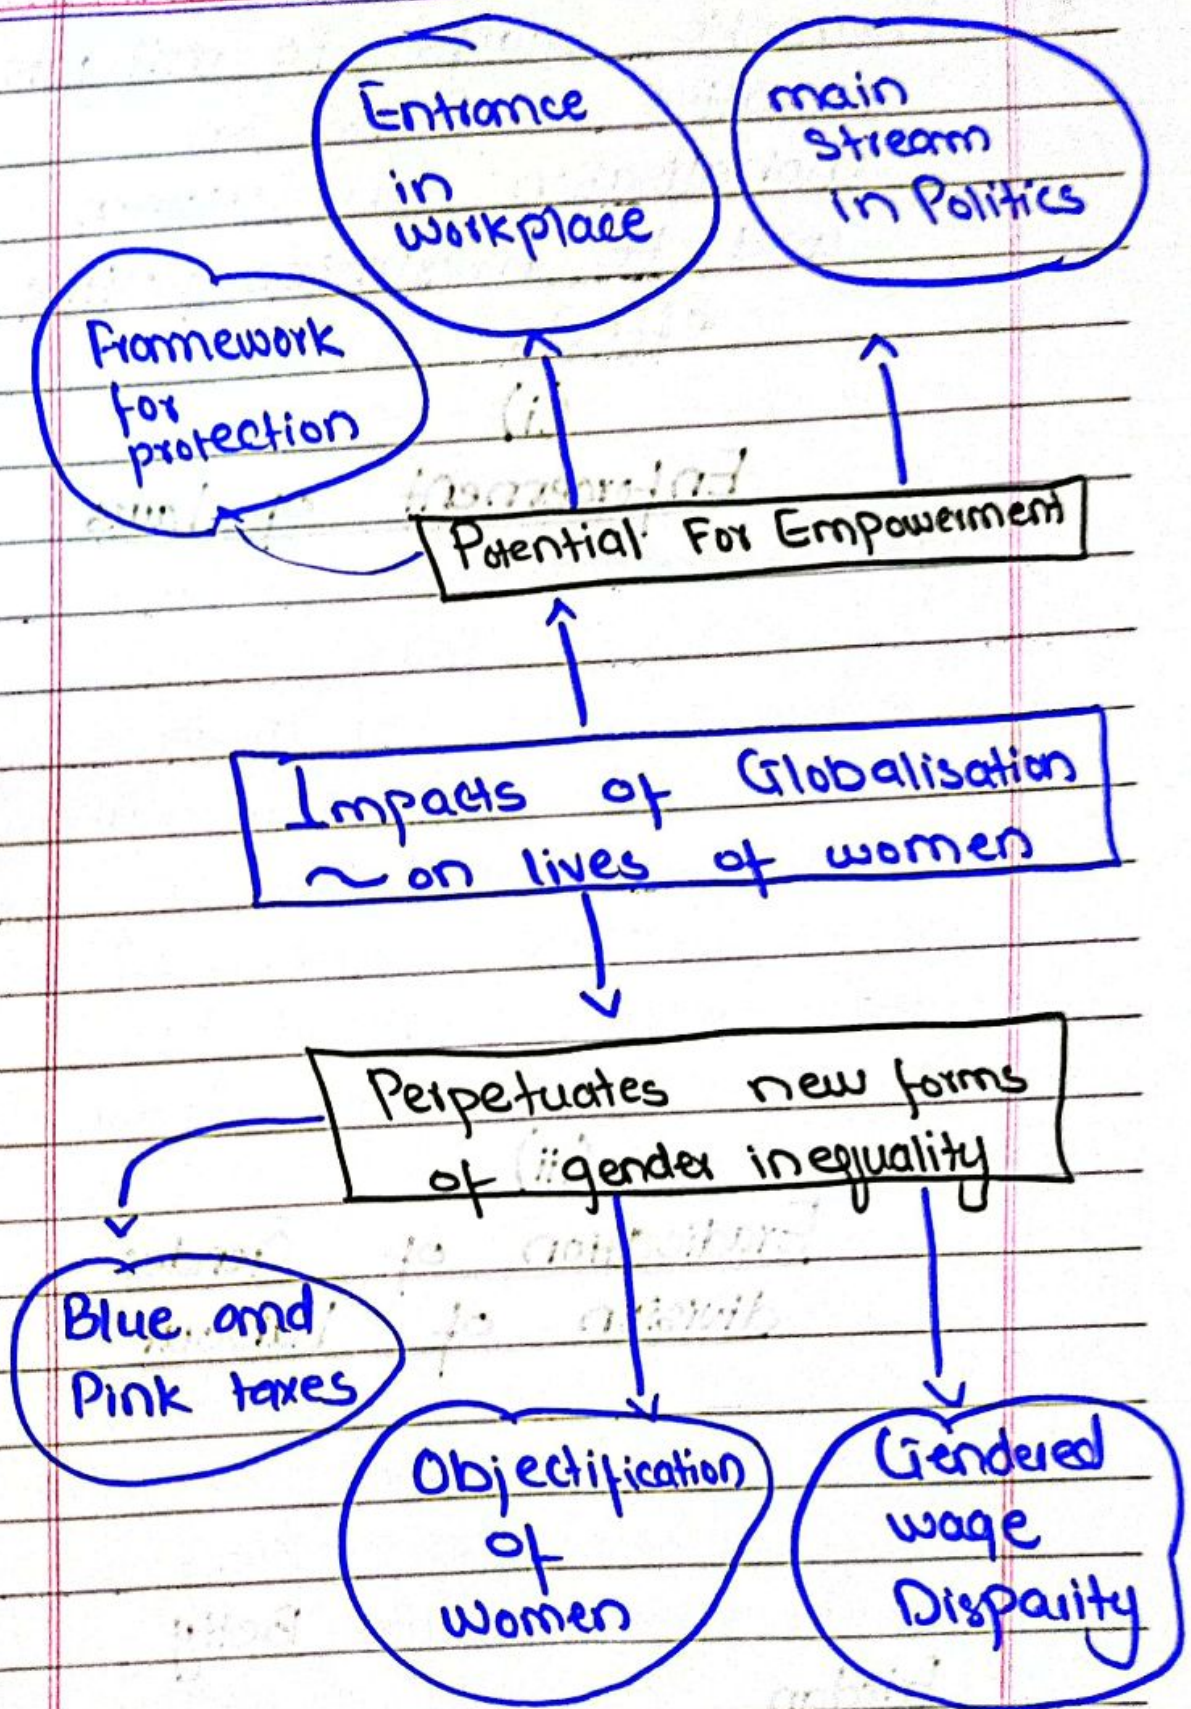 Entrance
in
workplace
main
stream
in Politics
Framework
for
protection
Potential For Empowerment
Impacts of Globalisation
~ on lives of women
Perpetuates new forms
of gender inequality
Blue and
Pink taxes
Objectification
of
women
Gendered
wage
Disparity